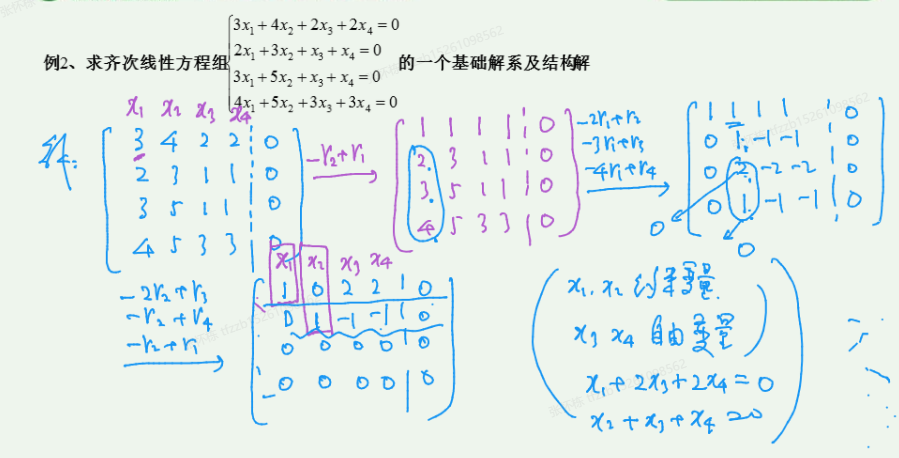 例2、求齐次线性方程组 的一个基础解系及结构解
3x₁ + 4x₂ + 2x₃ + 2x₄ = 0
2x₁ + 3x₂ + x₃ + x₄ = 0
3x₁ + 5x₂ + x₃ + x₄ = 0
4x₁ + 5x₂ + 3x₃ + 3x₄ = 0
x₁ x₂ x₃ x₄
3 4 2 2 0
2 3 1 1 0
3 5 1 1 0
4 5 3 3 0
-r₂+r₁
1 1 1 1 0
2 3 1 1 0
3 5 1 1 0
4 5 3 3 0
-2r₁+r₂
-3r₁+r₃
-4r₁+r₄
1 1 1 1 0
0 1 -1 -1 0
0 2 -2 -2 0
0 1 -1 -1 0
0
0
-2r₂+r₃
-r₂+r₄
-r₂+r₁
x₁ x₂ x₃ x₄
1 0 2 2 0
0 1 -1 -1 0
0 0 0 0 0
0 0 0 0 0
x₁, x₂ 约束变量
x₃ x₄ 自由变量
x₁+2x₃+2x₄=0
x₂+x₃+x₄=0